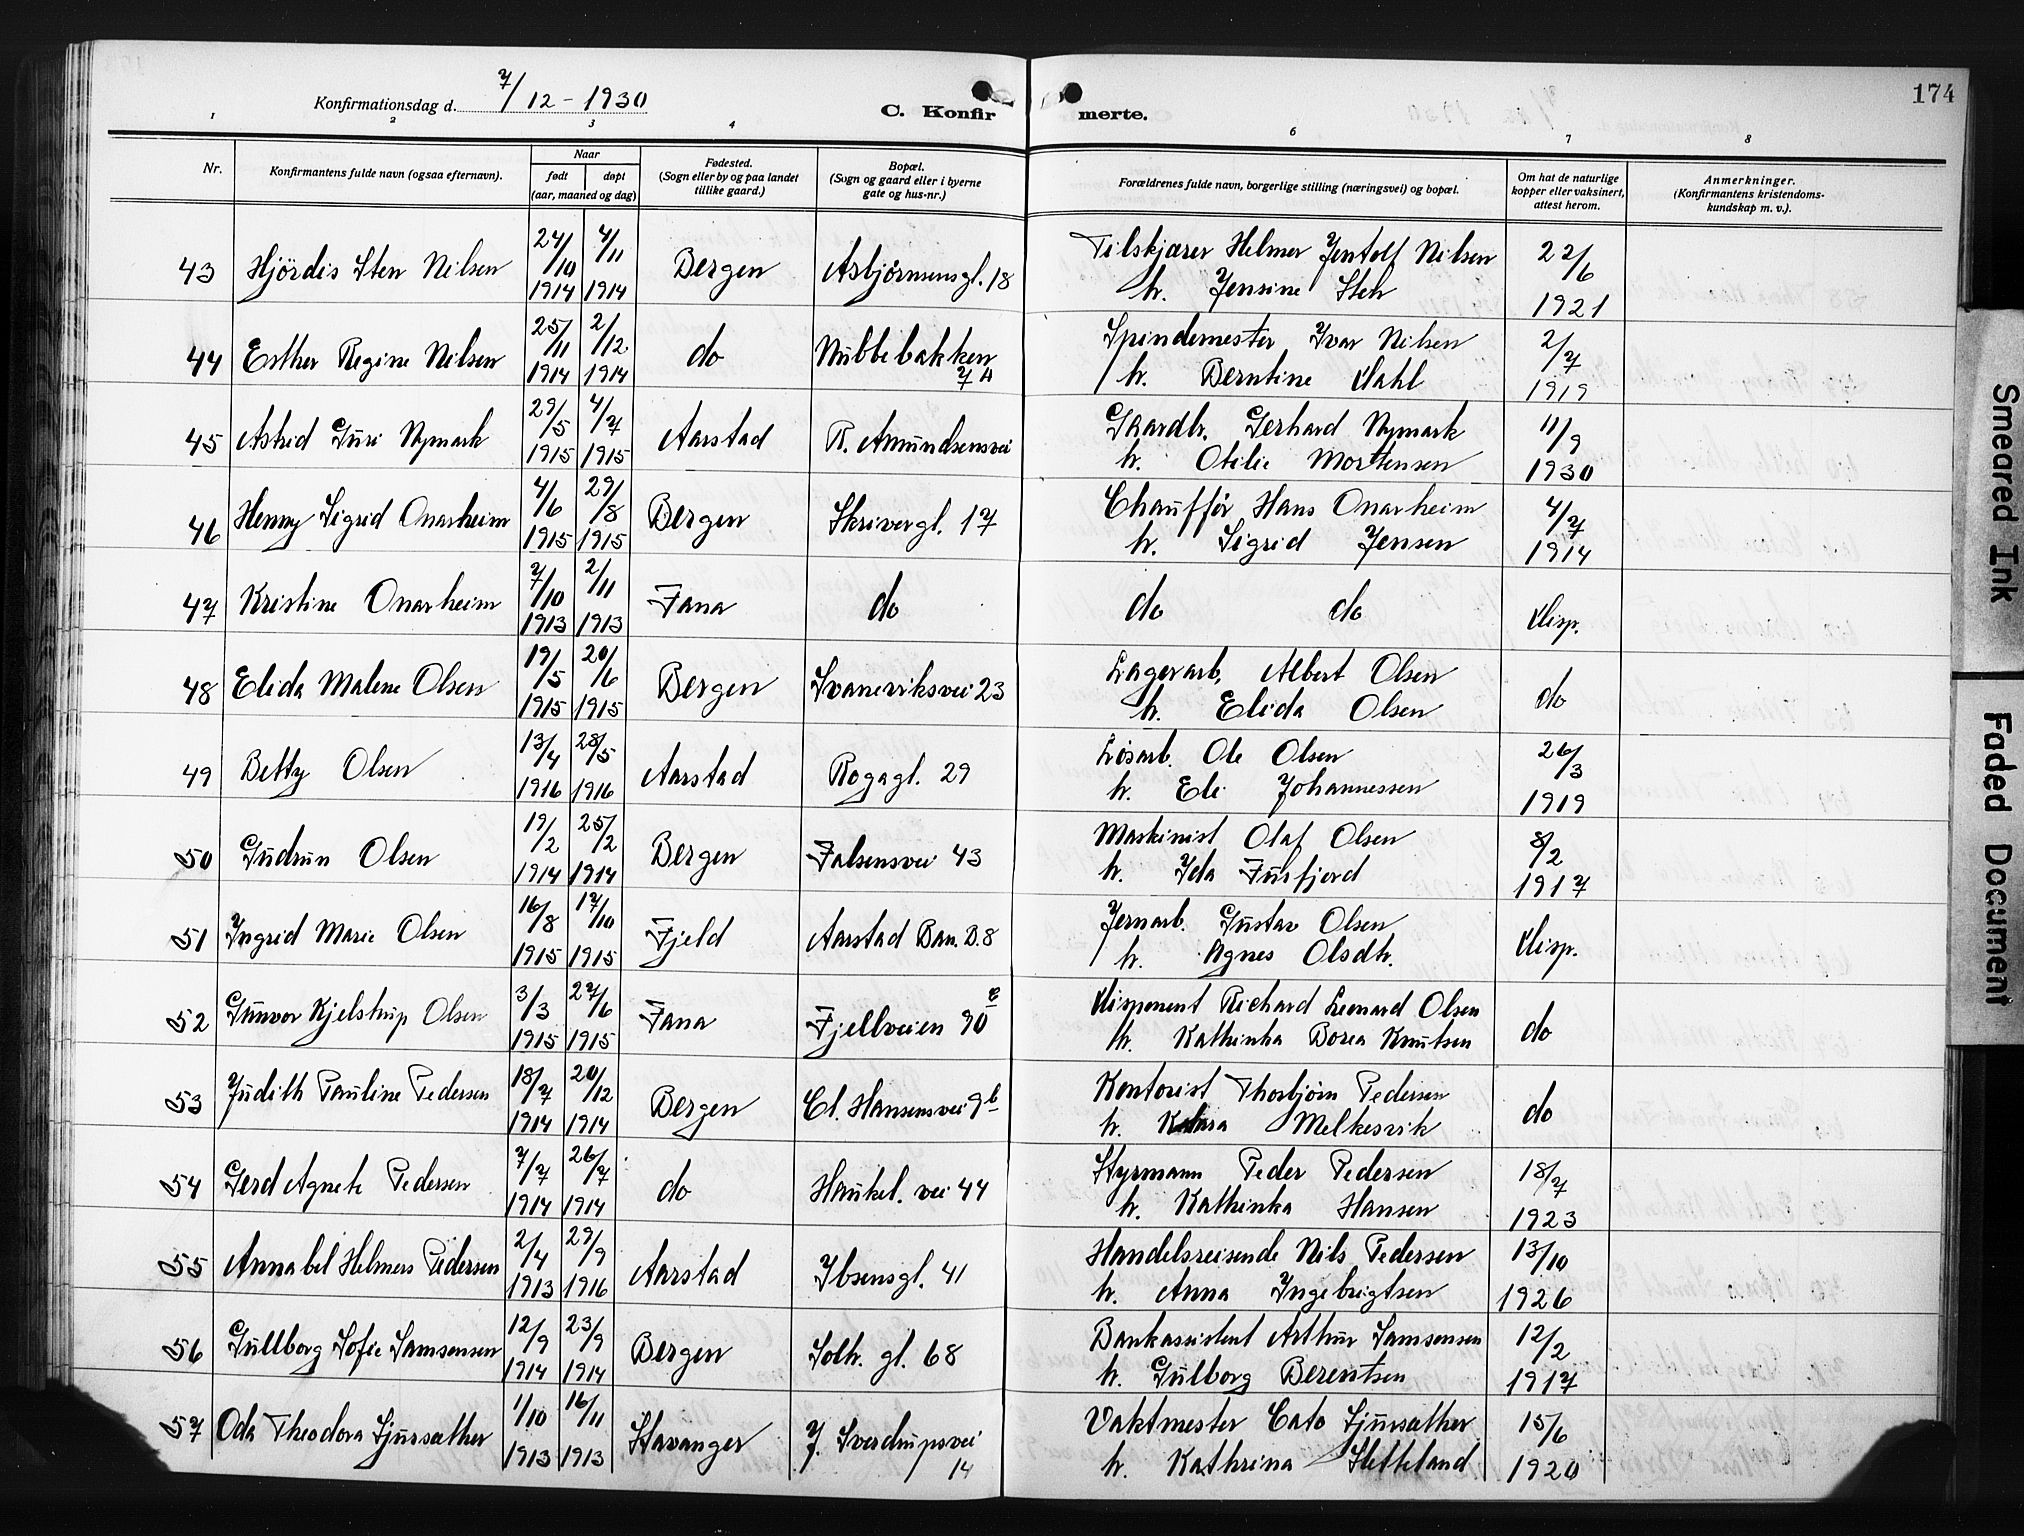 174
Konfirmationsdag d. 7/12 - 1930
C. Konfirmerte.
1 2 3 4 6 7 8
Nr.
Konfirmantens fulde navn (ogsaa efternavn).
Naar
født døpt
(aar, maaned og dag)
Fødested.
(Sogn eller by og paa landet
tillike gaard.)
Bopæl.
(Sogn og gaard eller i byerne
gate og hus-nr.)
Forældrenes fulde navn, borgerlige stilling (næringsvei) og bopæl.
Om hat de naturlige
kopper eller vaksinert,
attest herom.
Anmerkninger.
(Konfirmantens kristendoms-
kundskap m. v.).
43 Hjördis Sten Nilsen 24/10 1914 4/11 1914 Bergen Asbjørnsensgt. 18 Tilskjærer Helmer Jentolf Nilsen
h. Jensine Sten 22/6 1921
44 Esther Regine Nilsen 25/11 1914 2/12 1914 do Nubbebakken 7A Spindemester Ivar Nilsen
h. Berntine Dahl 2/7 1919
45 Astrid Guri Nymark 29/5 1915 4/7 1915 Aarstad R. Amundsensvei Gaardb. Gerhard Nymark
h. Otilie Mortensen 11/9 1930
46 Henny Sigrid Onarheim 4/6 1915 29/8 1915 Bergen Skrivergt. 17 Chauffør Hans Onarheim
h. Sigrid Jensen 4/7 1914
47 Kristine Onarheim 7/10 1913 2/11 1913 Fana do do do Disp.
48 Elida Malene Olsen 19/5 1915 20/6 1915 Bergen Svaneviksvei 23 Lagerarb. Albert Olsen
h. Elida Olsen do
49 Betty Olsen 13/4 1916 28/5 1916 Aarstad Rogagt. 29 Løsarb. Ole Olsen
h. Eli Johannessen 26/3 1919
50 Gudrun Olsen 19/2 1914 25/2 1914 Bergen Falsensvei 43 Maskinist Olaf Olsen
h. Ida Fusfjord 8/2 1917
51 Ingrid Marie Olsen 16/8 1915 17/10 1915 Fjeld Aarstad Ban. B. 8 Jernarb. Gustav Olsen
h. Agnes Olsdtr. Disp.
52 Gunvor Kjelstrup Olsen 3/3 1915 27/6 1915 Fana Fjellveien 90 Disponent Richard Leonard Olsen
h. Kathinka Borea Knutsen do
53 Judith Pauline Pedersen 18/7 1914 20/12 1914 Bergen Cl. Hansensvei 9b Kontorist Thorbjørn Pedersen
h. Klara Melkesvik do
54 Gerd Agnete Pedersen 7/7 1914 26/7 1914 do Haukel. vei 44 Styrmann Peder Pedersen
h. Kathinka Hansen 18/7 1923
55 Annabel Helmers Pedersen 2/4 1913 29/9 1916 Aarstad Ibsensgt. 41 Handelsreisende Nils Pedersen
h. Anna Ingebrigtsen 13/10 1926
56 Gullborg Sofie Samsonsen 12/9 1914 23/9 1914 Bergen Solh. gt. 68 Bankassistent Arthur Samsonsen
h. Gulborg Berentsen 12/2 1917
57 Oda Theodora Sjursæther 1/10 1913 16/11 1913 Stavanger J. Sverdrupsvei 14 Vaktmester Cato Sjursæther
h. Kathrina Sletteland 15/6 1920
Smeared Ink
Faded Document